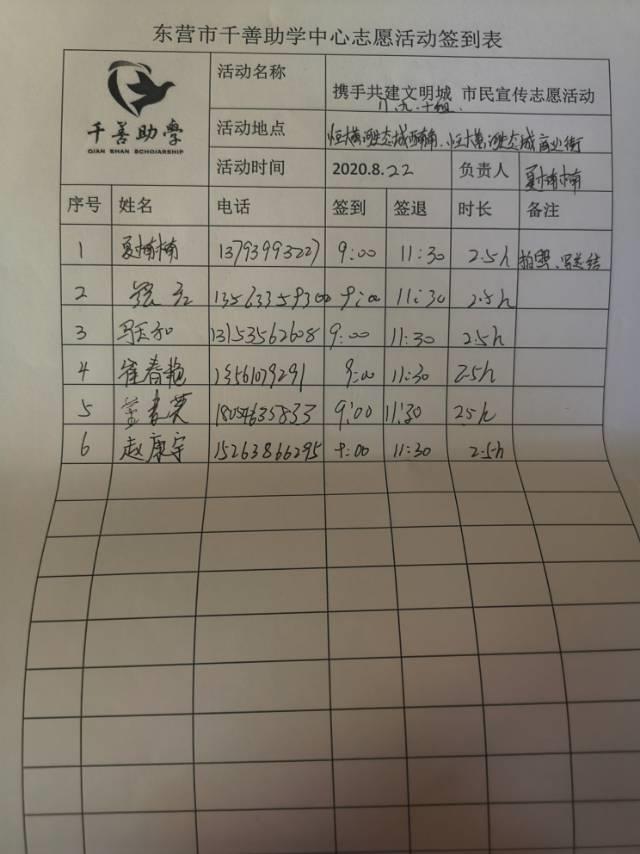 东营市千善助学中心志愿活动签到表
千善助学
QIAN SHAN SCHOLARSHIP
活动名称 携手共建文明城 市民宣传志愿活动
八.九.十组
活动地点 商业街
活动时间 2020.8.22 负责人 夏楠楠
序号 姓名 电话 签到 签退 时长 备注
1 夏楠楠 13793993227 9:00 11:30 2.5h 拍照
2 13563359300 9:00 11:30 2.5h
3 13153562608 9:00 11:30 2.5h
4 崔春艳 13561079291 9:00 11:30 2.5h
5 18054635833 9:00 11:30 2.5h
6 赵康宇 15263866295 9:00 11:30 2.5h